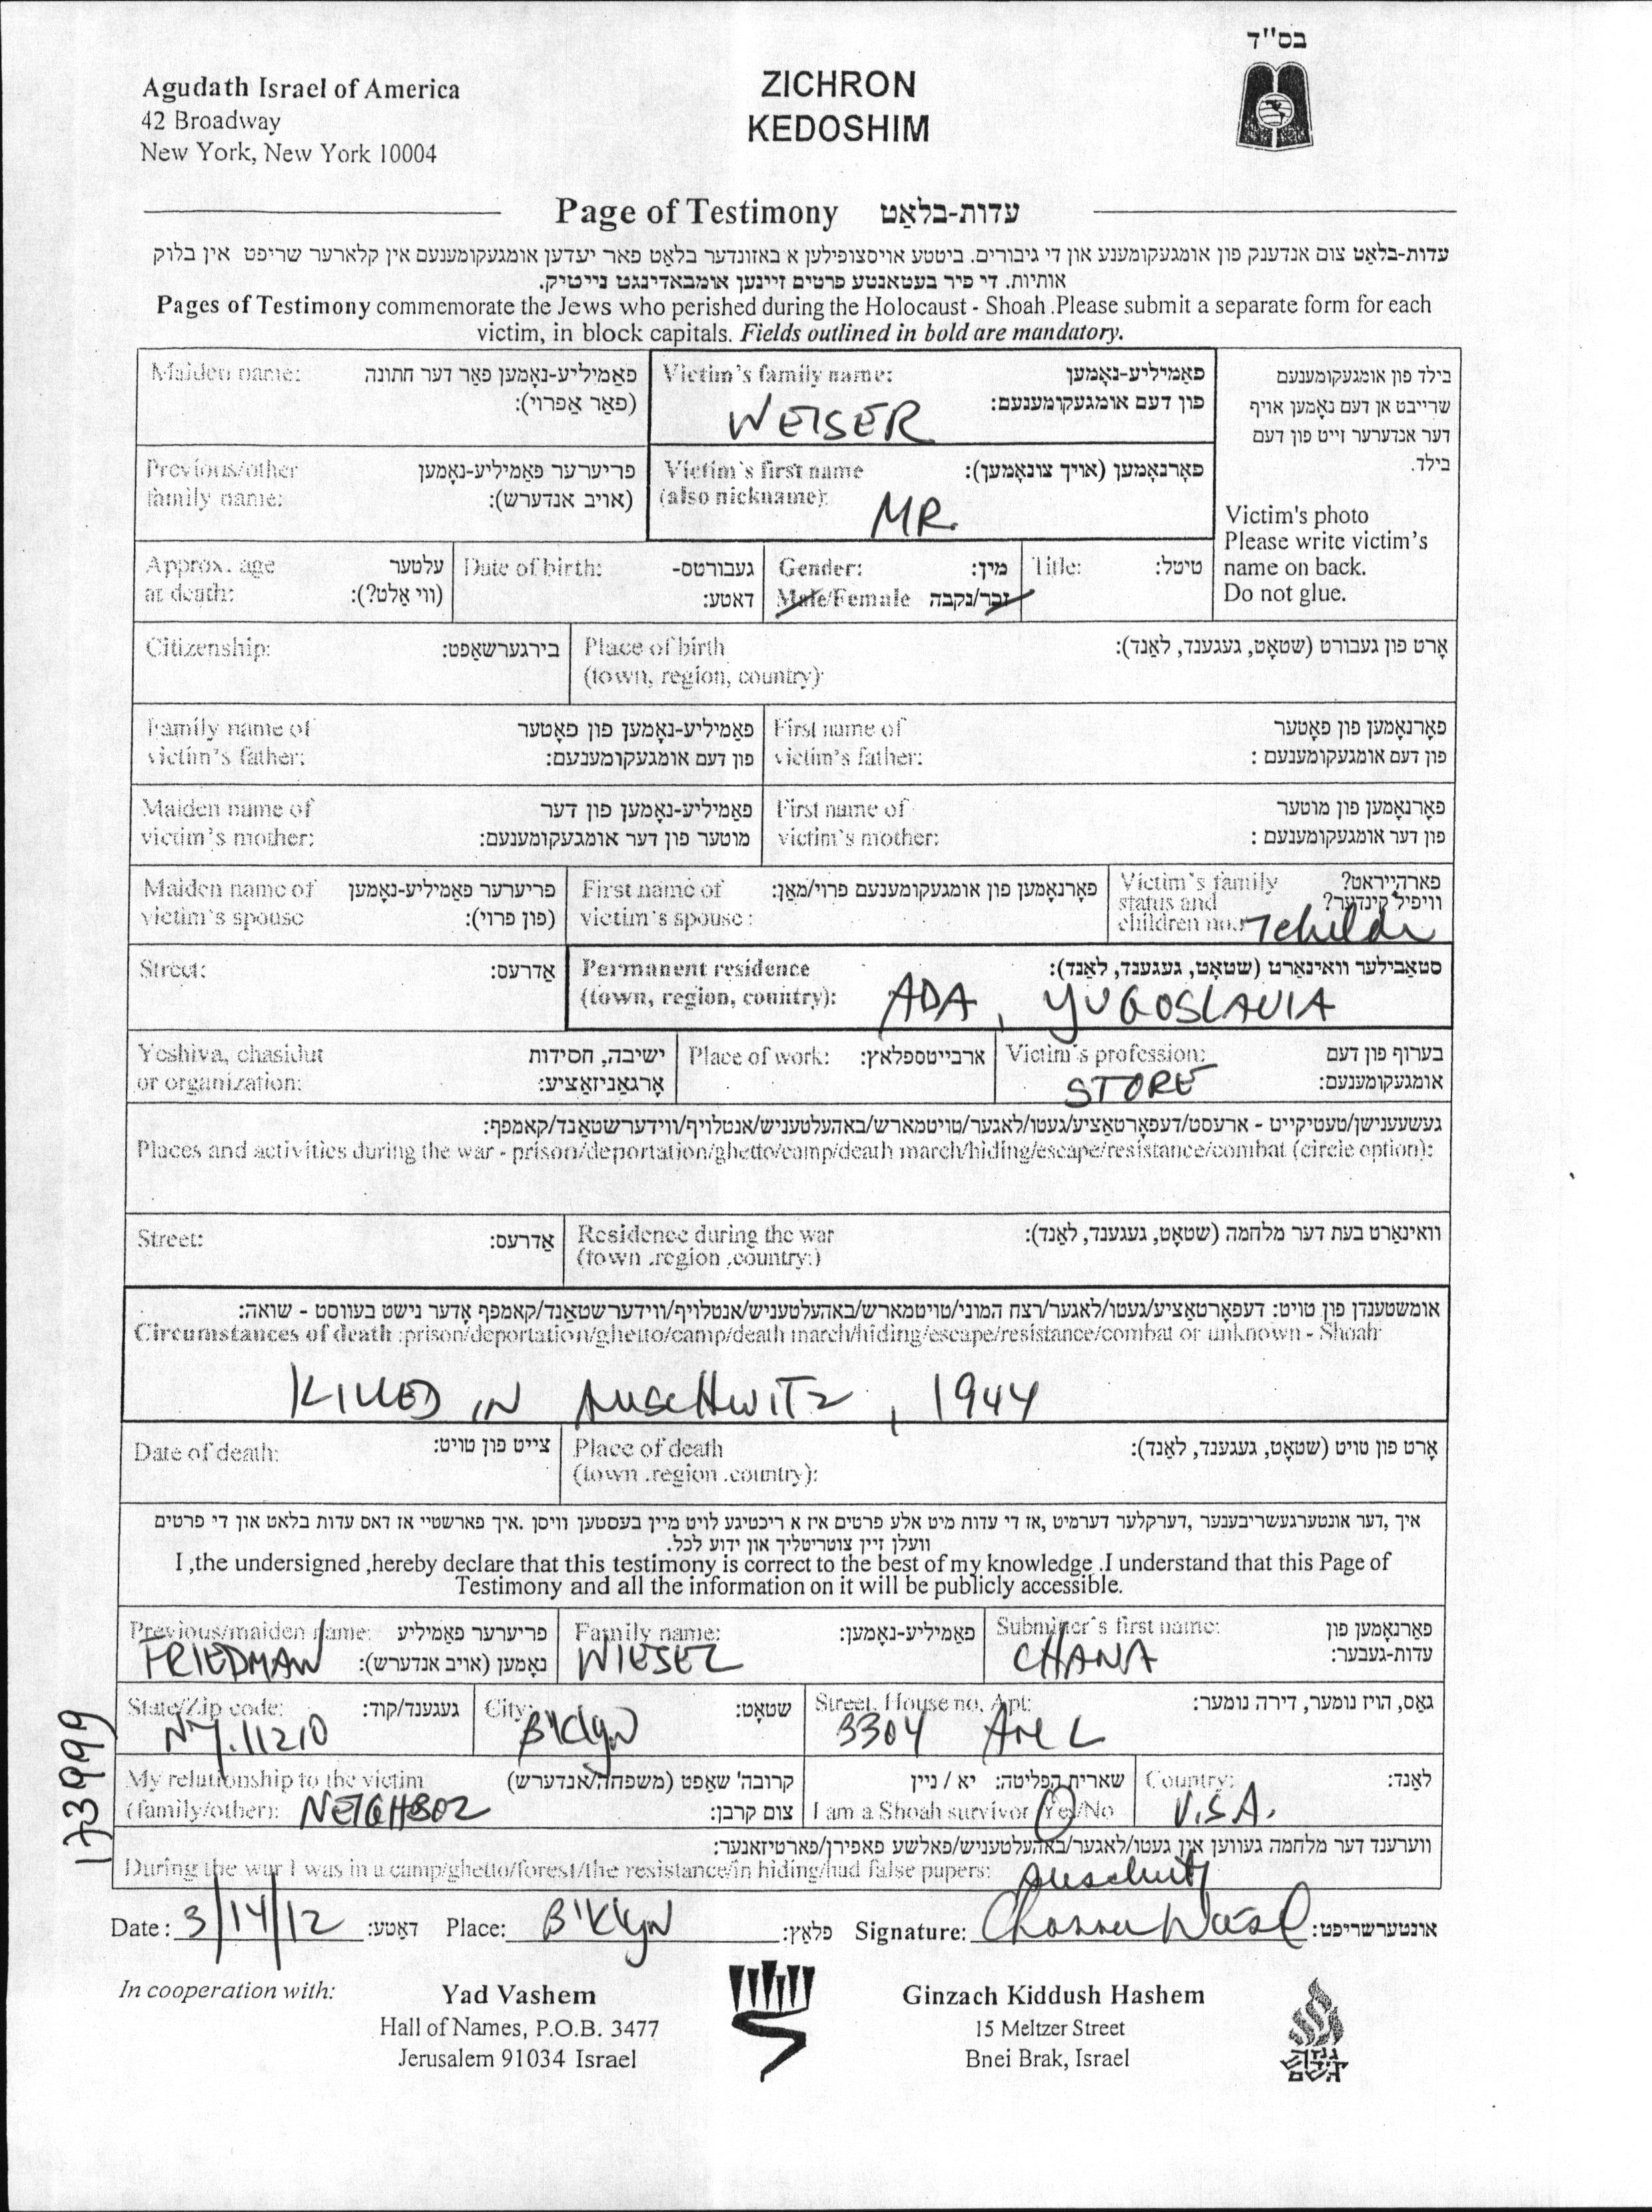 בס"ד
Agudath Israel of America
42 Broadway
New York, New York 10004
ZICHRON
KEDOSHIM
Page of Testimony עדות-בלאַט
עדות-בלאַט צום אנדענק פון אומגעקומענע און די גיבורים. ביטטע אויסצופילען א באזונדער בלאַט פאר יעדען אומגעקומענעם אין קלארער שריפט אין בלוק
אותיות. די פיר בעטאנטע פרטים זיינען אומבאדינגט נייטיק.
Pages of Testimony commemorate the Jews who perished during the Holocaust - Shoah .Please submit a separate form for each
victim, in block capitals. Fields outlined in bold are mandatory.
Maiden name: פאַמיליע-נאָמען פאַר דער חתונה
(פאַר אַפרוי):
Victim's family name: פאַמיליע-נאָמען
פון דעם אומגעקומענעם:
WEISER
בילד פון אומגעקומענעם
שרייבט אן דעם נאָמען אויף
דער אנדערער זייט פון דעם
בילד.
Victim's photo
Please write victim's
name on back.
Do not glue.
Previous/other פריערער פאַמיליע-נאָמען
family name: (אויב אנדערש):
Victim's first name פאָרנאָמען (אויך צונאָמען):
(also nickname):
MR.
Approx. age עלטער
at death: (ווי אַלט?):
Date of birth: געבורטס-
דאטע:
Gender: מין:
Male/Female זכר/נקבה
Title: טיטל:
Citizenship: בירגערשאַפט:
Place of birth אָרט פון געבורט (שטאָט, געגענד, לאַנד):
(town, region, country):
Family name of פאַמיליע-נאָמען פון פאָטער
victim's father: פון דעם אומגעקומענעם:
First name of פאָרנאָמען פון פאָטער
victim's father: פון דעם אומגעקומענעם :
Maiden name of פאַמיליע-נאָמען פון דער
victim's mother: מוטער פון דער אומגעקומענעם:
First name of פאָרנאָמען פון מוטער
victim's mother: פון דער אומגעקומענעם :
Maiden name of פריערער פאַמיליע-נאָמען
victim's spouse (פון פרוי):
First name of פאָרנאָמען פון אומגעקומענעם פרוי/מאַן:
victim's spouse :
Victim's family פארהייראט?
status and וויפיל קינדער?
children no.:
Street: אַדרעס:
Permanent residence סטאַבילער וואינאָרט (שטאָט, געגענד, לאַנד):
(town, region, country): ADA, YUGOSLAVIA
Yeshiva, chasidut ישיבה, חסידות
or organization: אָרגאַניזאַציע:
Place of work: ארבייטספלאץ:
Victim's profession: בערוף פון דעם
אומגעקומענעם:
STORE
געשעענישן/טעטיקייט - ארעסט/דעפאָרטאַציע/געטו/לאגער/טויטמארש/באהעלטעניש/אנטלויף/ווידערשטאַנד/קאמפף:
Places and activities during the war - prison/deportation/ghetto/camp/death march/hiding/escape/resistance/combat (circle option):
Street: אַדרעס:
Residence during the war וואינאָרט בעת דער מלחמה (שטאָט, געגענד, לאַנד):
(town .region .country:)
אומשטענדן פון טויט: דעפאָרטאַציע/געטו/לאגער/רצח המוני/טויטמארש/באהעלטעניש/אנטלויף/ווידערשטאַנד/קאמפף אָדער נישט בעווסט - שואה:
Circumstances of death :prison/deportation/ghetto/camp/death march/hiding/escape/resistance/combat or unknown - Shoah
KILLED IN AUSCHWITZ, 1944
Date of death: צייט פון טויט:
Place of death אָרט פון טויט (שטאָט, געגענד, לאַנד):
(town .region .country):
איך ,דער אונטערגעשריבענער ,דערקלער דערמיט ,אז די עדות מיט אלע פרטים איז א ריכטיגע לויט מיין בעסטען וויסן .איך פארשטיי אז דאס עדות בלאט און די פרטים
וועלן זיין צוטריטליך און ידוע לכל.
I ,the undersigned ,hereby declare that this testimony is correct to the best of my knowledge .I understand that this Page of
Testimony and all the information on it will be publicly accessible.
Previous/maiden name: פריערער פאַמיליע
נאָמען (אויב אנדערש):
FRIEDMAN
Family name: פאַמיליע-נאָמען:
WIESEL
Submitter's first name: פאָרנאָמען פון
עדות-געבער:
CHANA
State/Zip code: געגענד/קוד:
NY. 11210
City: שטאָט:
B'klyn
Street, House no, Apt: גאַס, הויז נומער, דירה נומער:
3304 Ave L
My relationship to the victim קרובה' שאַפט (משפחה/אנדערש)
(family/other): NEIGHBOR צום קרבן:
שארית הפליטה: יא / ניין
I am a Shoah survivor Yes/No
Country: לאַנד:
U.S.A.
ווערענד דער מלחמה געווען אין געטו/לאגער/באהעלטעניש/פאלשע פאפירן/פארטיזאנער:
During the war I was in a camp/ghetto/forest/the resistance/in hiding/had false papers:
Auschwitz
Date: 3/14/12 דאַטע: Place: B'klyn פלאַץ: Signature: Chana Wiesel אונטערשריפט:
173999
In cooperation with:
Yad Vashem
Hall of Names, P.O.B. 3477
Jerusalem 91034 Israel
Ginzach Kiddush Hashem
15 Meltzer Street
Bnei Brak, Israel
גנזך
קידוש
השם